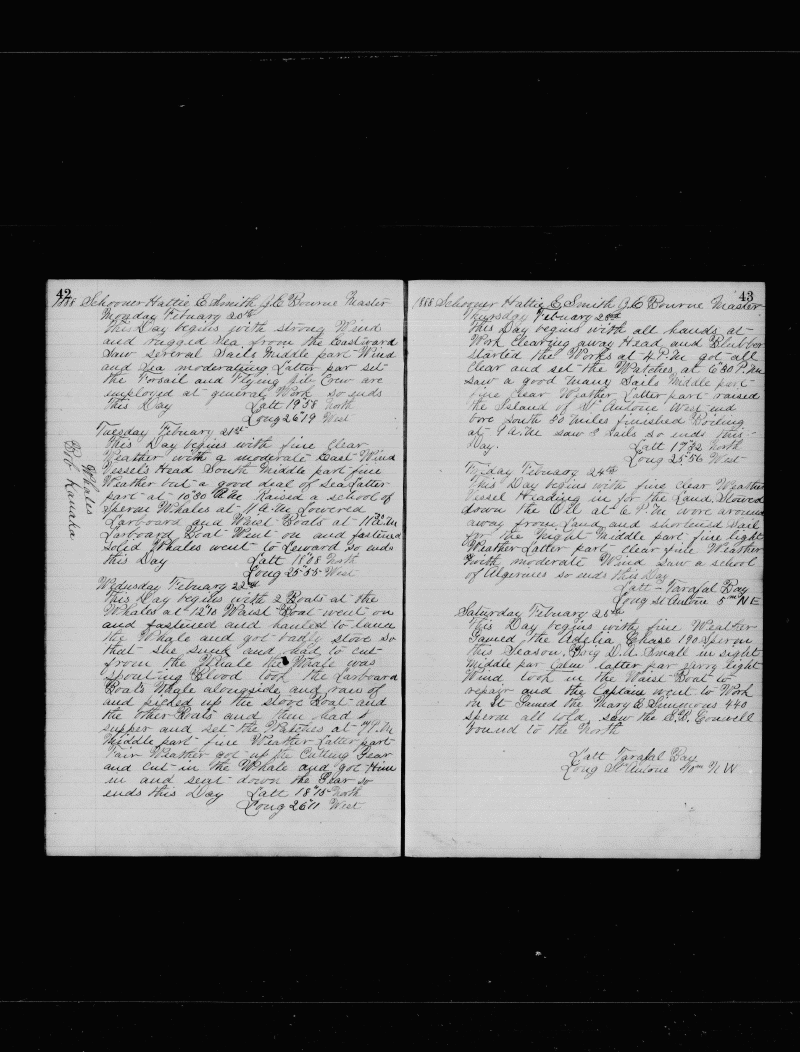 42
1888 Schooner Hattie E Smith J.E Bourne Master
Monday Febuary 20th
This Day begins with strong Wind
and rugged Sea from the Eastward
Saw several Sails Middle part Wind
and Sea moderating Latter par set
the Forsail and Flying jib Crew are
employed at general Work so ends
this Day Latt 19"58 North
Long 26"19 West
Tuesday Febuary 21st
This Day begins with fine clear
Weather with a moderate East Wind
Vessels Head South Middle part fine
Weather but a good deal of Sea Latter
part at 10"30 A.M. Raised a school of
Sperm Whales at 11 A.M Lowered
Larboard and Waist Boats at A.M
Larboard Boat Went on and fastened
solid Whales went to Leward so ends
this Day Latt 18"08 North
Long 25"55 West
Whales
Bob Kanaka
Wedusday Febuary 22nd
This Day begins with 2 Boats at the
Whales at 12"10 Waist Boat went on
and fastened and hauled to lance
the Whale and got badly stove so
that she sunk and had to cut
from the Whale the Whale was
spouting Blood took the Larboard
Boats Whale alongside and ran of
and picked up the stove Boat and
the other Boats and then had
supper and set the Watches at P.M
Middle part fine Weather Latter part
Fair Weather got up the Cutting Gear
and cut in the Whale and got Him
in and sent down the Gear so
ends this Day Latt 18"15 North
Long 26"11 West
43
1888 Schooner Hattie E Smith J.E Bourne Master
Thursday Febuary 23rd
This Day begins with all hands at
Work clearing away Head and Blubber
started the Works at 4 P.M got all
clear and set the Watches at 6"30 P.M
saw a good many Sails Middle part
fine clear Weather Latter part raised
the Island of St Antone West end
bore South 30 Miles finished Boiling
at 9 A.M saw 3 Sails so ends this
Day. Latt 17"32 North
Long 25"56 West
Friday Febuary 24th
This Day begins with fine clear Weather
Vessel Heading in for the Land Stowed
down the Oil at 6 P.M wore around
away from Land and shortened sail
for the Night Middle part fine light
Weather Latter part clear fine Weather
with moderate Wind Saw a school
of Algerines so ends this Day
Latt Tarafal Bay
Long St Antone 5m N E
Saturday Febuary 25th
This Day begins with fine Weather
Gamed the Adelia Chase 190 Sperm
this Season, Brig D.A. Small in sight
Middle par Calm latter par very light
Wind took in the Waist Boat to
repair and the Captain went to Work
on it Gamed the Mary E Simmons 440
Sperm all told, saw the
bound to the North
Latt Tarafal Bay
Long St Antone 40m N W